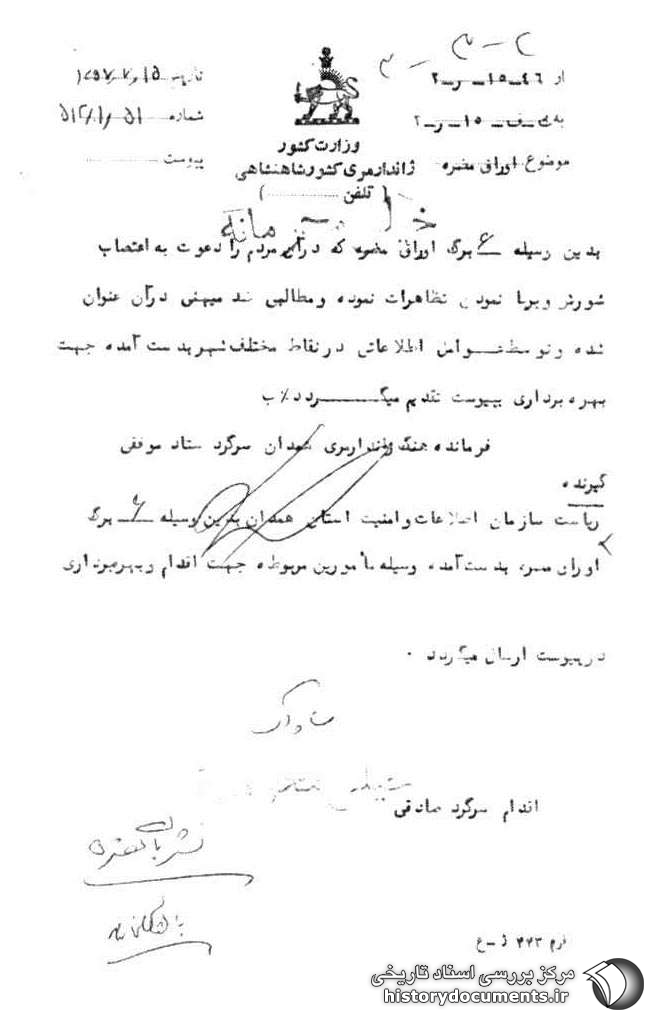 ۲-۳-۳
از ۴۶-۱۵-ر-۲
تاریخ ۱۳۵۷/۷/۱۵
به
۱۵-ر-۲
شماره
وزارت کشور
موضوع اوراق مضره
ژاندارمری کشور شاهنشاهی
پیوست
(تلفن )
خیلی محرمانه
بدین وسیله ۶ برگ اوراق مضره که در آن مردم را دعوت به اعتصاب
شورش و برپا نمودن تظاهرات نموده و مطالبی ضد میهنی در آن عنوان
شده و توسط عوامل اطلاعاتی در نقاط مختلف شهر بدست آمده جهت
بهره برداری بپیوست تقدیم میگردد
فرمانده هنگ ژاندارمری همدان سرگرد ستاد موفقی
گیرنده
ریاست سازمان اطلاعات و امنیت استان همدان بدین وسیله ۶ برگ
اوراق مضره بدست آمده وسیله مأمورین مربوطه جهت اقدام و بهره برداری
در پیوست ارسال میگردد .
ساواک
اقدام سرگرد صادقی
نشریات مضره
فرم ۴۷۳ ژ-ع
مرکز بررسی اسناد تاریخی
historydocuments.ir